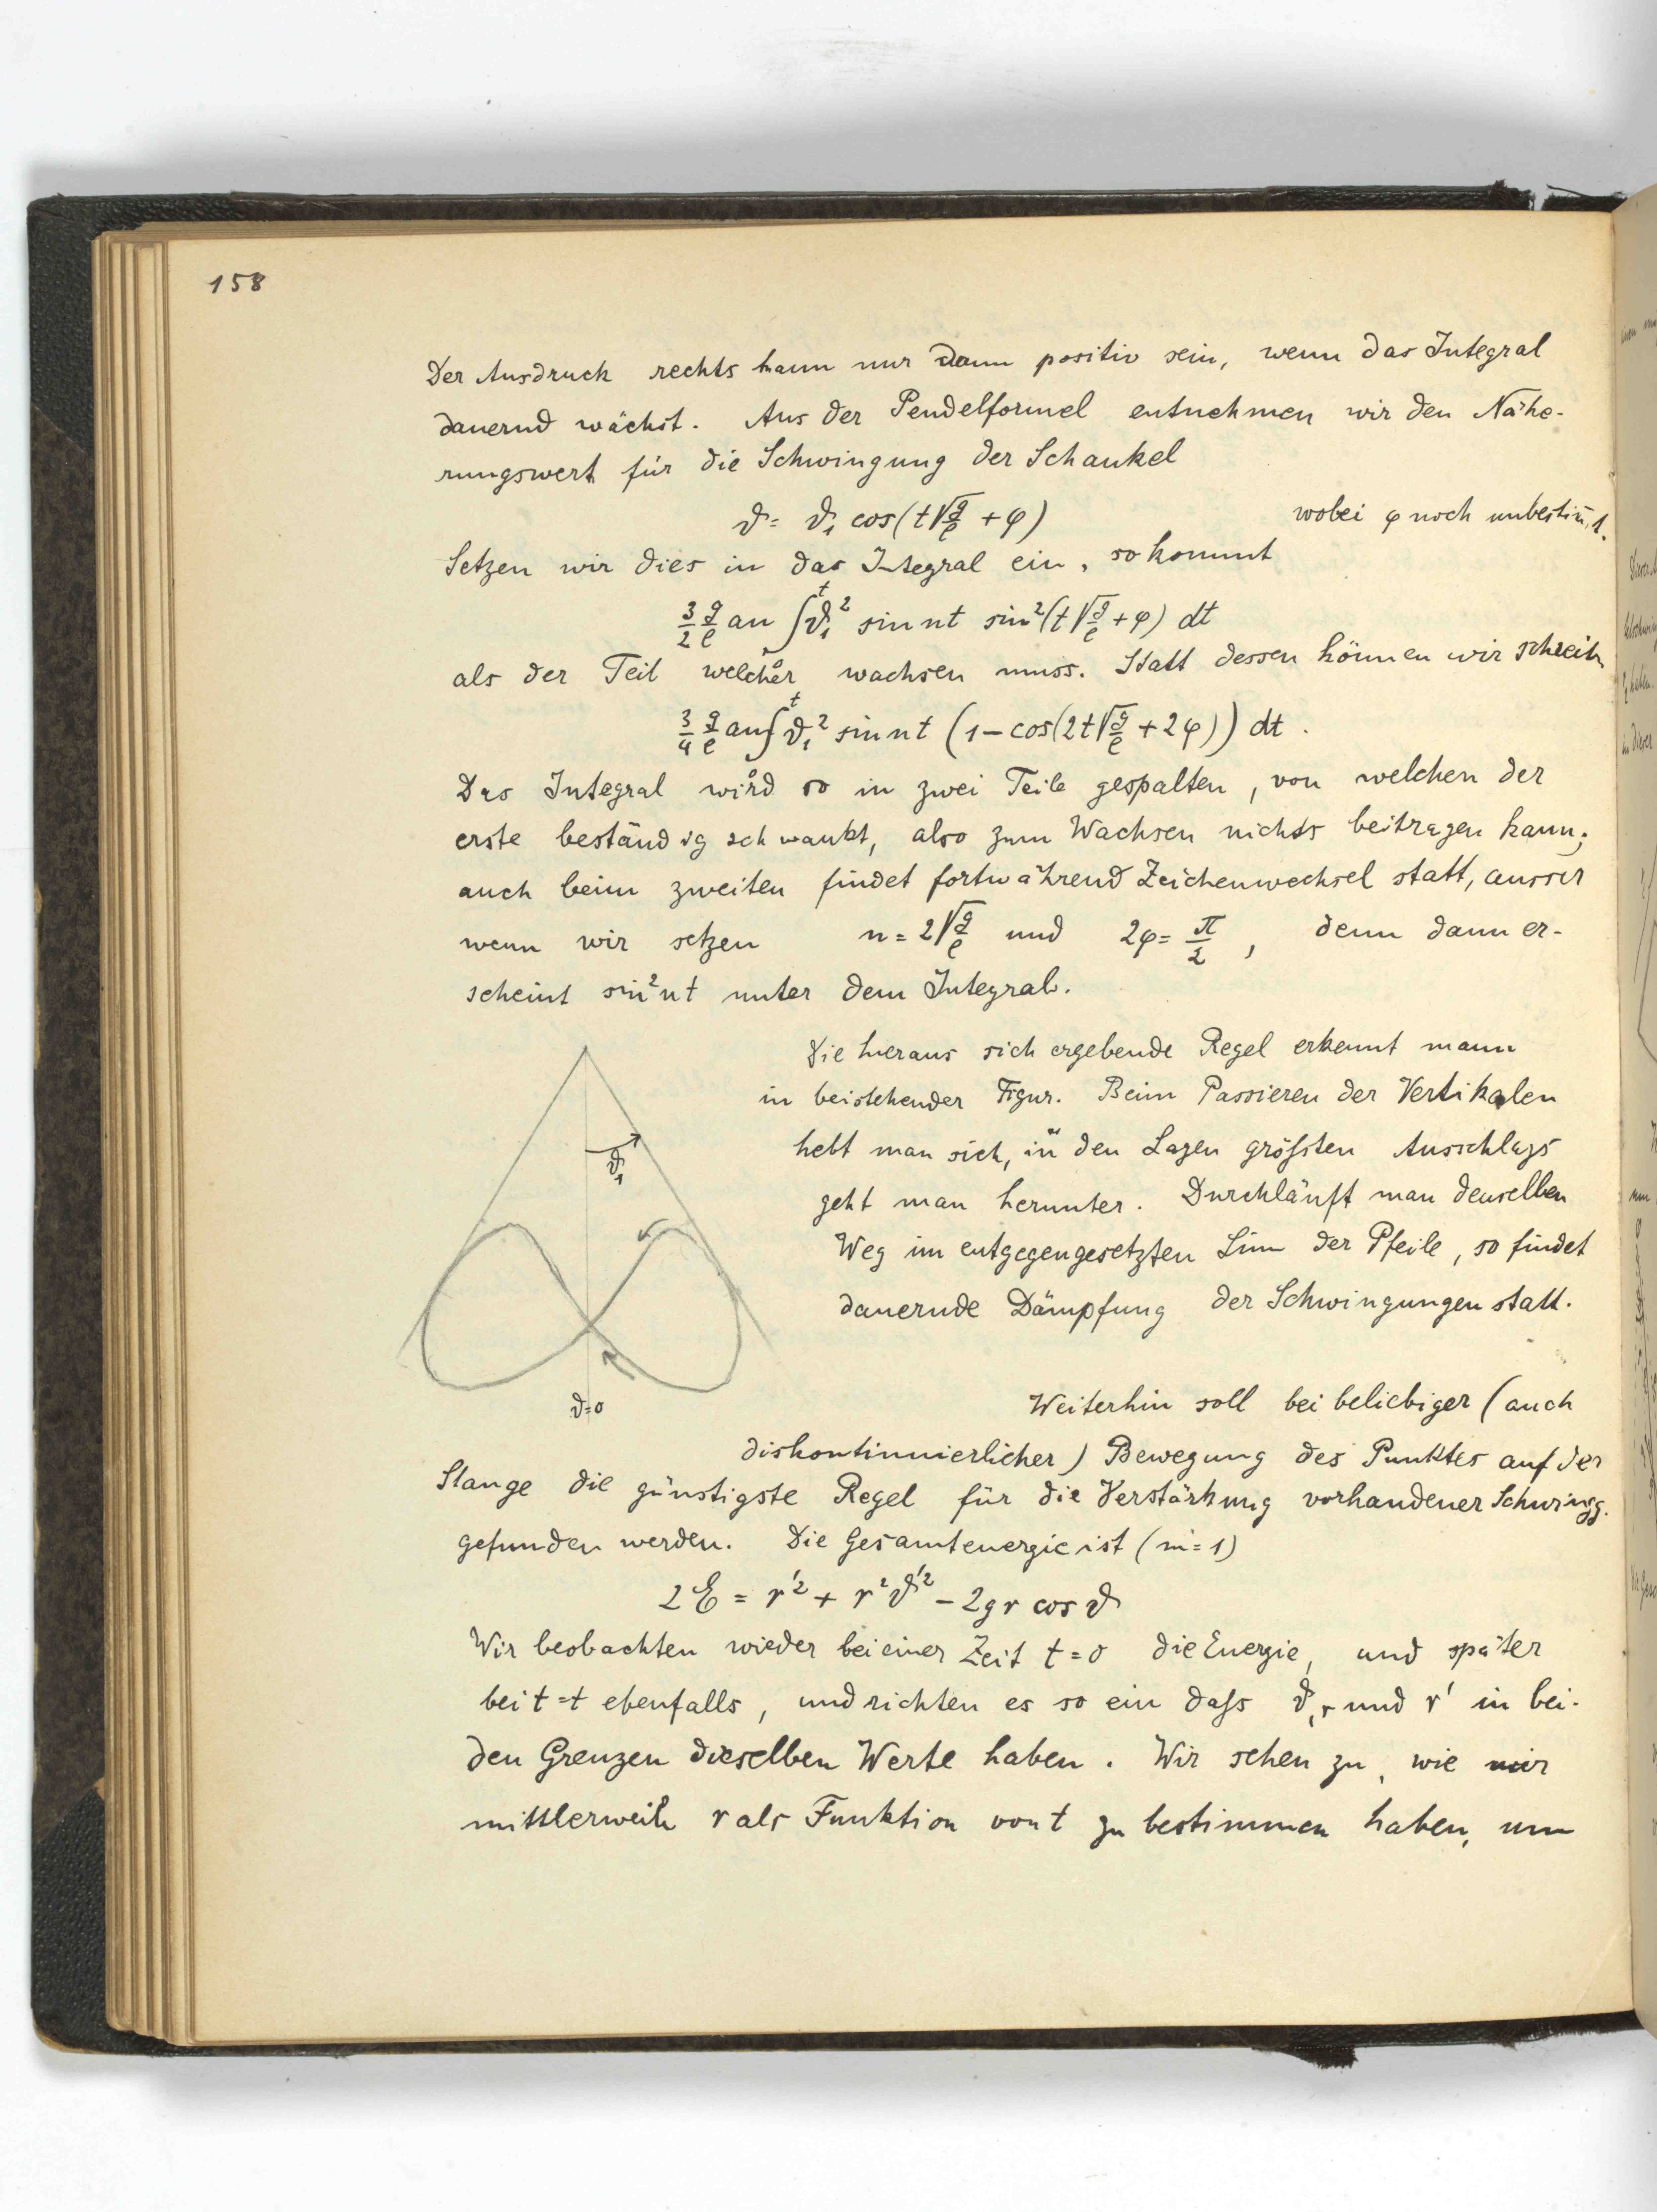 158
Der Ausdruck rechts kann nur dann positiv sein, wenn das Integral
dauernd wächst. Aus der Pendelformel entnehmen wir den Nähe-
rungswert für die Schwingung der Schaukel
ϑ = ϑ₁ cos(t√(g/ℓ) + φ) wobei φ noch unbestim̄t.
Setzen wir dies in das Integral ein, so kommt
3/2 g/ℓ an ∫₀ᵗ ϑ₁² sin nt sin²(t√(g/ℓ) + φ) dt
als der Teil welcher wachsen muss. Statt dessen können wir schreib.
3/4 g/ℓ an ∫₀ᵗ ϑ₁² sin nt (1 − cos(2t√(g/ℓ) + 2φ)) dt.
Das Integral wird so in zwei Teile gespalten, von welchen der
erste beständig schwankt, also zum Wachsen nichts beitragen kann;
auch beim zweiten findet fortwährend Zeichenwechsel statt, ausser
wenn wir setzen n = 2√(g/ℓ) und 2φ = π/2, denn dann er-
scheint sin²nt unter dem Integral.
Die hieraus sich ergebende Regel erkennt mann
in beistehender Figur. Beim Passieren der Vertikalen
hebt man sich, in den Lagen größten Ausschlags
geht man herunter. Durchläuft man denselben
Weg im entgegengesetzten Sinn der Pfeile, so findet
dauernde Dämpfung der Schwingungen statt.
ϑ₁
ϑ=0
Weiterhin soll bei beliebiger (auch
diskontinuierlicher) Bewegung des Punktes auf der
Stange die günstigste Regel für die Verstärkung vorhandener Schwingg.
gefunden werden. Die Gesamtenergie ist (m = 1)
2E = r'² + r²ϑ'² − 2gr cos ϑ
Wir beobachten wieder bei einer Zeit t = 0 die Energie, und später
bei t = t ebenfalls, und richten es so ein daß ϑ, r und r' in bei-
den Grenzen dieselben Werte haben. Wir sehen zu, wie wir
mittlerweile r als Funktion von t zu bestimmen haben, um